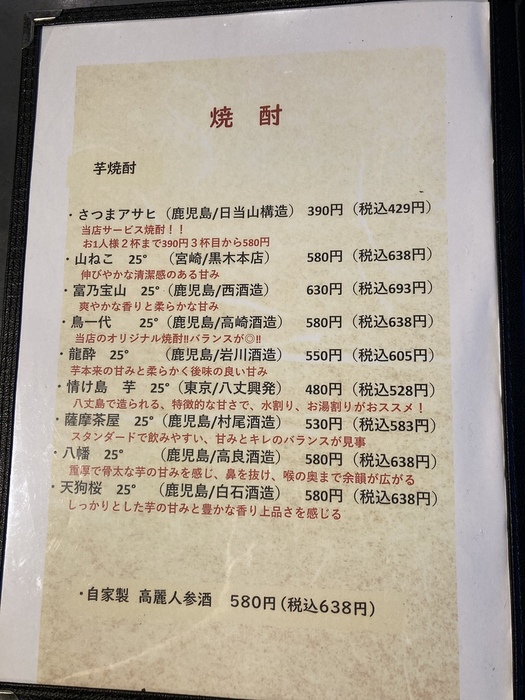 焼 酎
芋焼酎
・さつまアサヒ（鹿児島/日当山構造） 390円（税込429円）
当店サービス焼酎！！
お1人様２杯まで390円３杯目から580円
・山ねこ 25° （宮崎/黒木本店） 580円（税込638円）
伸びやかな清潔感のある甘み
・富乃宝山 25°（鹿児島/西酒造） 630円（税込693円）
爽やかな香りと柔らかな甘み
・鳥一代 25°（鹿児島/高崎酒造） 580円（税込638円）
当店のオリジナル焼酎‼バランスが◎‼
・龍酔 25° （鹿児島/岩川酒造） 550円（税込605円）
芋本来の甘みと柔らかく後味の良い甘み
・情け島 芋 25°（東京/八丈興発） 480円（税込528円）
八丈島で造られる、特徴的な甘さで、水割り、お湯割りがおススメ！
・薩摩茶屋 25°（鹿児島/村尾酒造） 530円（税込583円）
スタンダードで飲みやすい、甘みとキレのバランスが見事
・八幡 25° （鹿児島/高良酒造） 580円（税込638円）
重厚で骨太な芋の甘みを感じ、鼻を抜け、喉の奥まで余韻が広がる
・天狗桜 25° （鹿児島/白石酒造） 580円（税込638円）
しっかりとした芋の甘みと豊かな香り上品さを感じる
・自家製 高麗人参酒 580円（税込638円）